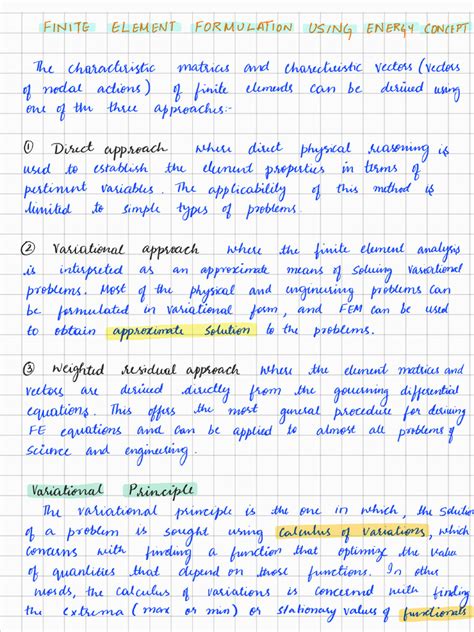 FINITE ELEMENT FORMULATION USING ENERGY CONCEPT
The characteristic matrices and characteristic vectors (vectors
of nodal actions) of finite elements can be derived using
one of the three approaches:-
① Direct approach where direct physical reasoning is
used to establish the element properties in terms of
pertinent variables. The applicability of this method is
limited to simple types of problems.
② Variational approach where the finite element analysis
is interpreted as an approximate means of solving variational
problems. Most of the physical and engineering problems can
be formulated in variational form, and FEM can be used
to obtain approximate solution to the problems.
③ Weighted residual approach where the element matrices and
vectors are derived directly from the governing differential
equations. This offers the most general procedure for deriving
FE equations and can be applied to almost all problems of
science and engineering.
Variational Principle
The variational principle is the one in which, the solution
of a problem is sought using calculus of variations, which
concerns with finding a function that optimize the value
of quantities that depend on those functions. In other
words, the calculus of variations is concerned with finding
the extrema (max or min) or stationary values of functionals